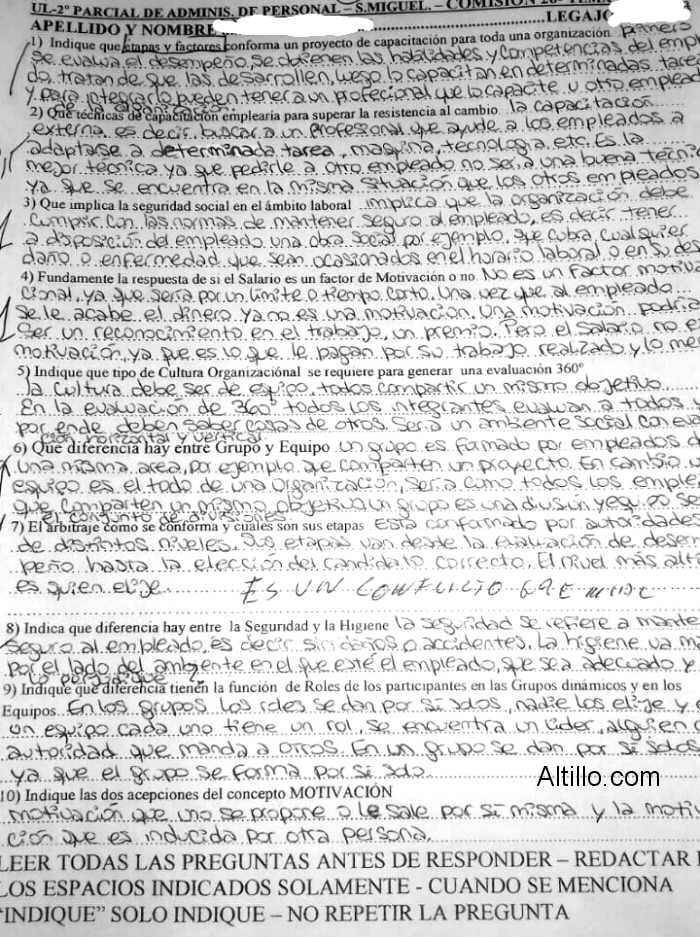 UL-2º PARCIAL DE ADMINIS. DE PERSONAL – S.MIGUEL. – COMISION 20ª TEMA
APELLIDO Y NOMBRE LEGAJO
1) Indique que etapas y factores conforma un proyecto de capacitación para toda una organización primero
se evalua el desempeño, se obtienen las habilidades y competencias del emp
do, tratan de que las desarrollen, luego lo capacitan en determinadas tarea
y para integrarlo pueden tener a un profecional que lo capacite u otro emplea
2) Que técnicas de capacitación emplearia para superar la resistencia al cambio la capacitacion
externa, es decir, buscar a un profesional que ayude a los empleados a
adaptarse a determinada tarea, maquina, tecnología, etc. Es la
mejor técnica ya que pedirle a otro empleado no seria una buena técnic
ya que se encuentra en la misma situación que los otros empleados
3) Que implica la seguridad social en el ámbito laboral implica que la organización debe
cumplir con las normas de mantener seguro al empleado, es decir tener
a disposición del empleado una obra social por ejemplo, que cubra cualquier
daño o enfermedad que sean ocasionados en el horario laboral o en su des
4) Fundamente la respuesta de si el Salario es un factor de Motivación o no No es un factor motiva
cional, ya que seria por un limite o tiempo corto. Una vez que al empleado
se le acabe el dinero ya no es una motivación. Una motivación podría
ser un reconocimiento en el trabajo, un premio. Pero el salario no e
motivación, ya que es lo que le pagan por su trabajo realizado y lo me
5) Indique que tipo de Cultura Organizaciónal se requiere para generar una evaluación 360º
la cultura debe ser de equipo, todos compartir un mismo objetivo
En la evaluación de 360º todos los integrantes evaluan a todos,
por ende deben saber cosas de otros. Seria un ambiente social con evalua
ción horizontal y vertical
6) Que diferencia hay entre Grupo y Equipo un grupo es formado por empleados de
una misma area, por ejemplo que comparten un proyecto. En cambio
equipo es el todo de una organización, seria como todos los emple
que comparten un mismo objetivo. un grupo es una división y equipo se
el conjunto de divisiones
7) El arbitraje como se conforma y cuales son sus etapas está conformado por autoridades
de distintos niveles. Sus etapas van desde la evaluación de desem
peño hasta la elección del candidato correcto. El nivel más alto
es quien elije. ES UN CONFLICTO GREMIAL
8) Indica que diferencia hay entre la Seguridad y la Higiene la seguridad se refiere a mante
seguro al empleado, es decir, sin daños o accidentes. La higiene va m
por el lado del ambiente en el que esté el empleado, que sea adecuado y
9) Indique que diferencia tienen la función de Roles de los participantes en las Grupos dinámicos y en los
Equipos En los grupos los roles se dan por si solos, nadie los elije y e
un equipo cada uno tiene un rol, se encuentra un lider, alguien c
autoridad que manda a otros. En un grupo se dan por si solos
ya que el grupo se forma por si solo.
Altillo.com
10) Indique las dos acepciones del concepto MOTIVACIÓN
motivación que uno se propone o le sale por si misma y la motiva
ción que es inducida por otra persona.
LEER TODAS LAS PREGUNTAS ANTES DE RESPONDER – REDACTAR
LOS ESPACIOS INDICADOS SOLAMENTE - CUANDO SE MENCIONA
"INDIQUE" SOLO INDIQUE – NO REPETIR LA PREGUNTA